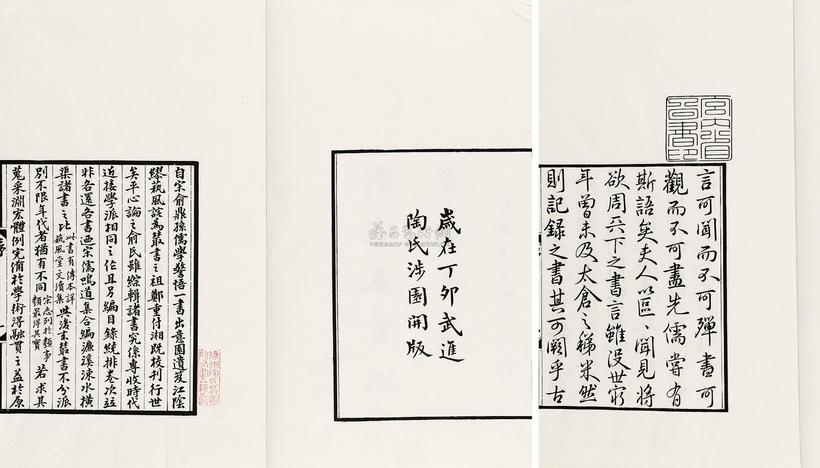 宮內省
圖書印
言可聞而不可殫書可
觀而不可盡先儒嘗有
斯語矣夫人以區、聞見將
欲周天下之書言雖没世窮
年曾未及太倉之稊米然
則記錄之書其可闕乎古
歲在丁卯武進
陶氏涉園開版
自宋俞鼎孫儒學警悟一書出意園遺笈江陰
繆藝風詫為叢書之祖鄭重付湘既校刊行世
矣平心論之俞氏雖綜輯諸書究係專收時代
近接學派相同之作且另編目錄統排卷次竝
非各還各書宋儒鳴道集合編濂溪涑水橫
渠諸書之比此書有傳本詳藝風堂文續集與後來叢書不分派
別不限年代者猶有不同宋志列於類事類最得其實若求其
蒐采淵宏體例完備於學術得融貫之益於原